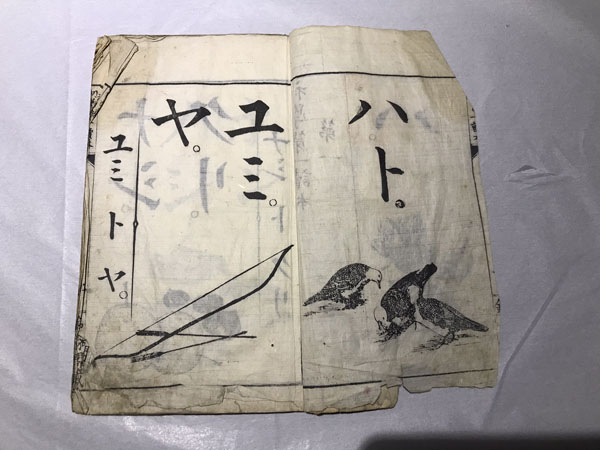 ハト。
ユミ。
ヤ。
ユミトヤ。